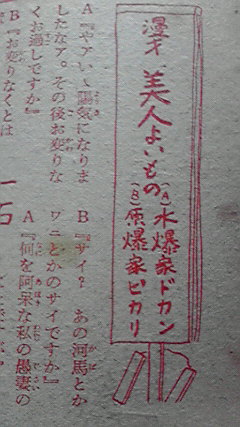 漫才 美人よいもの
(A)水爆家ドカン
(B)原爆家ピカリ
A『やァいく陽気になりま
したなァ。その後お変りな
くお過しですか』
B『お変りなくとは
一石
B『サイ? あの河馬とか
ワニとかのサイですか』
A『何を阿呆な私の愚妻の